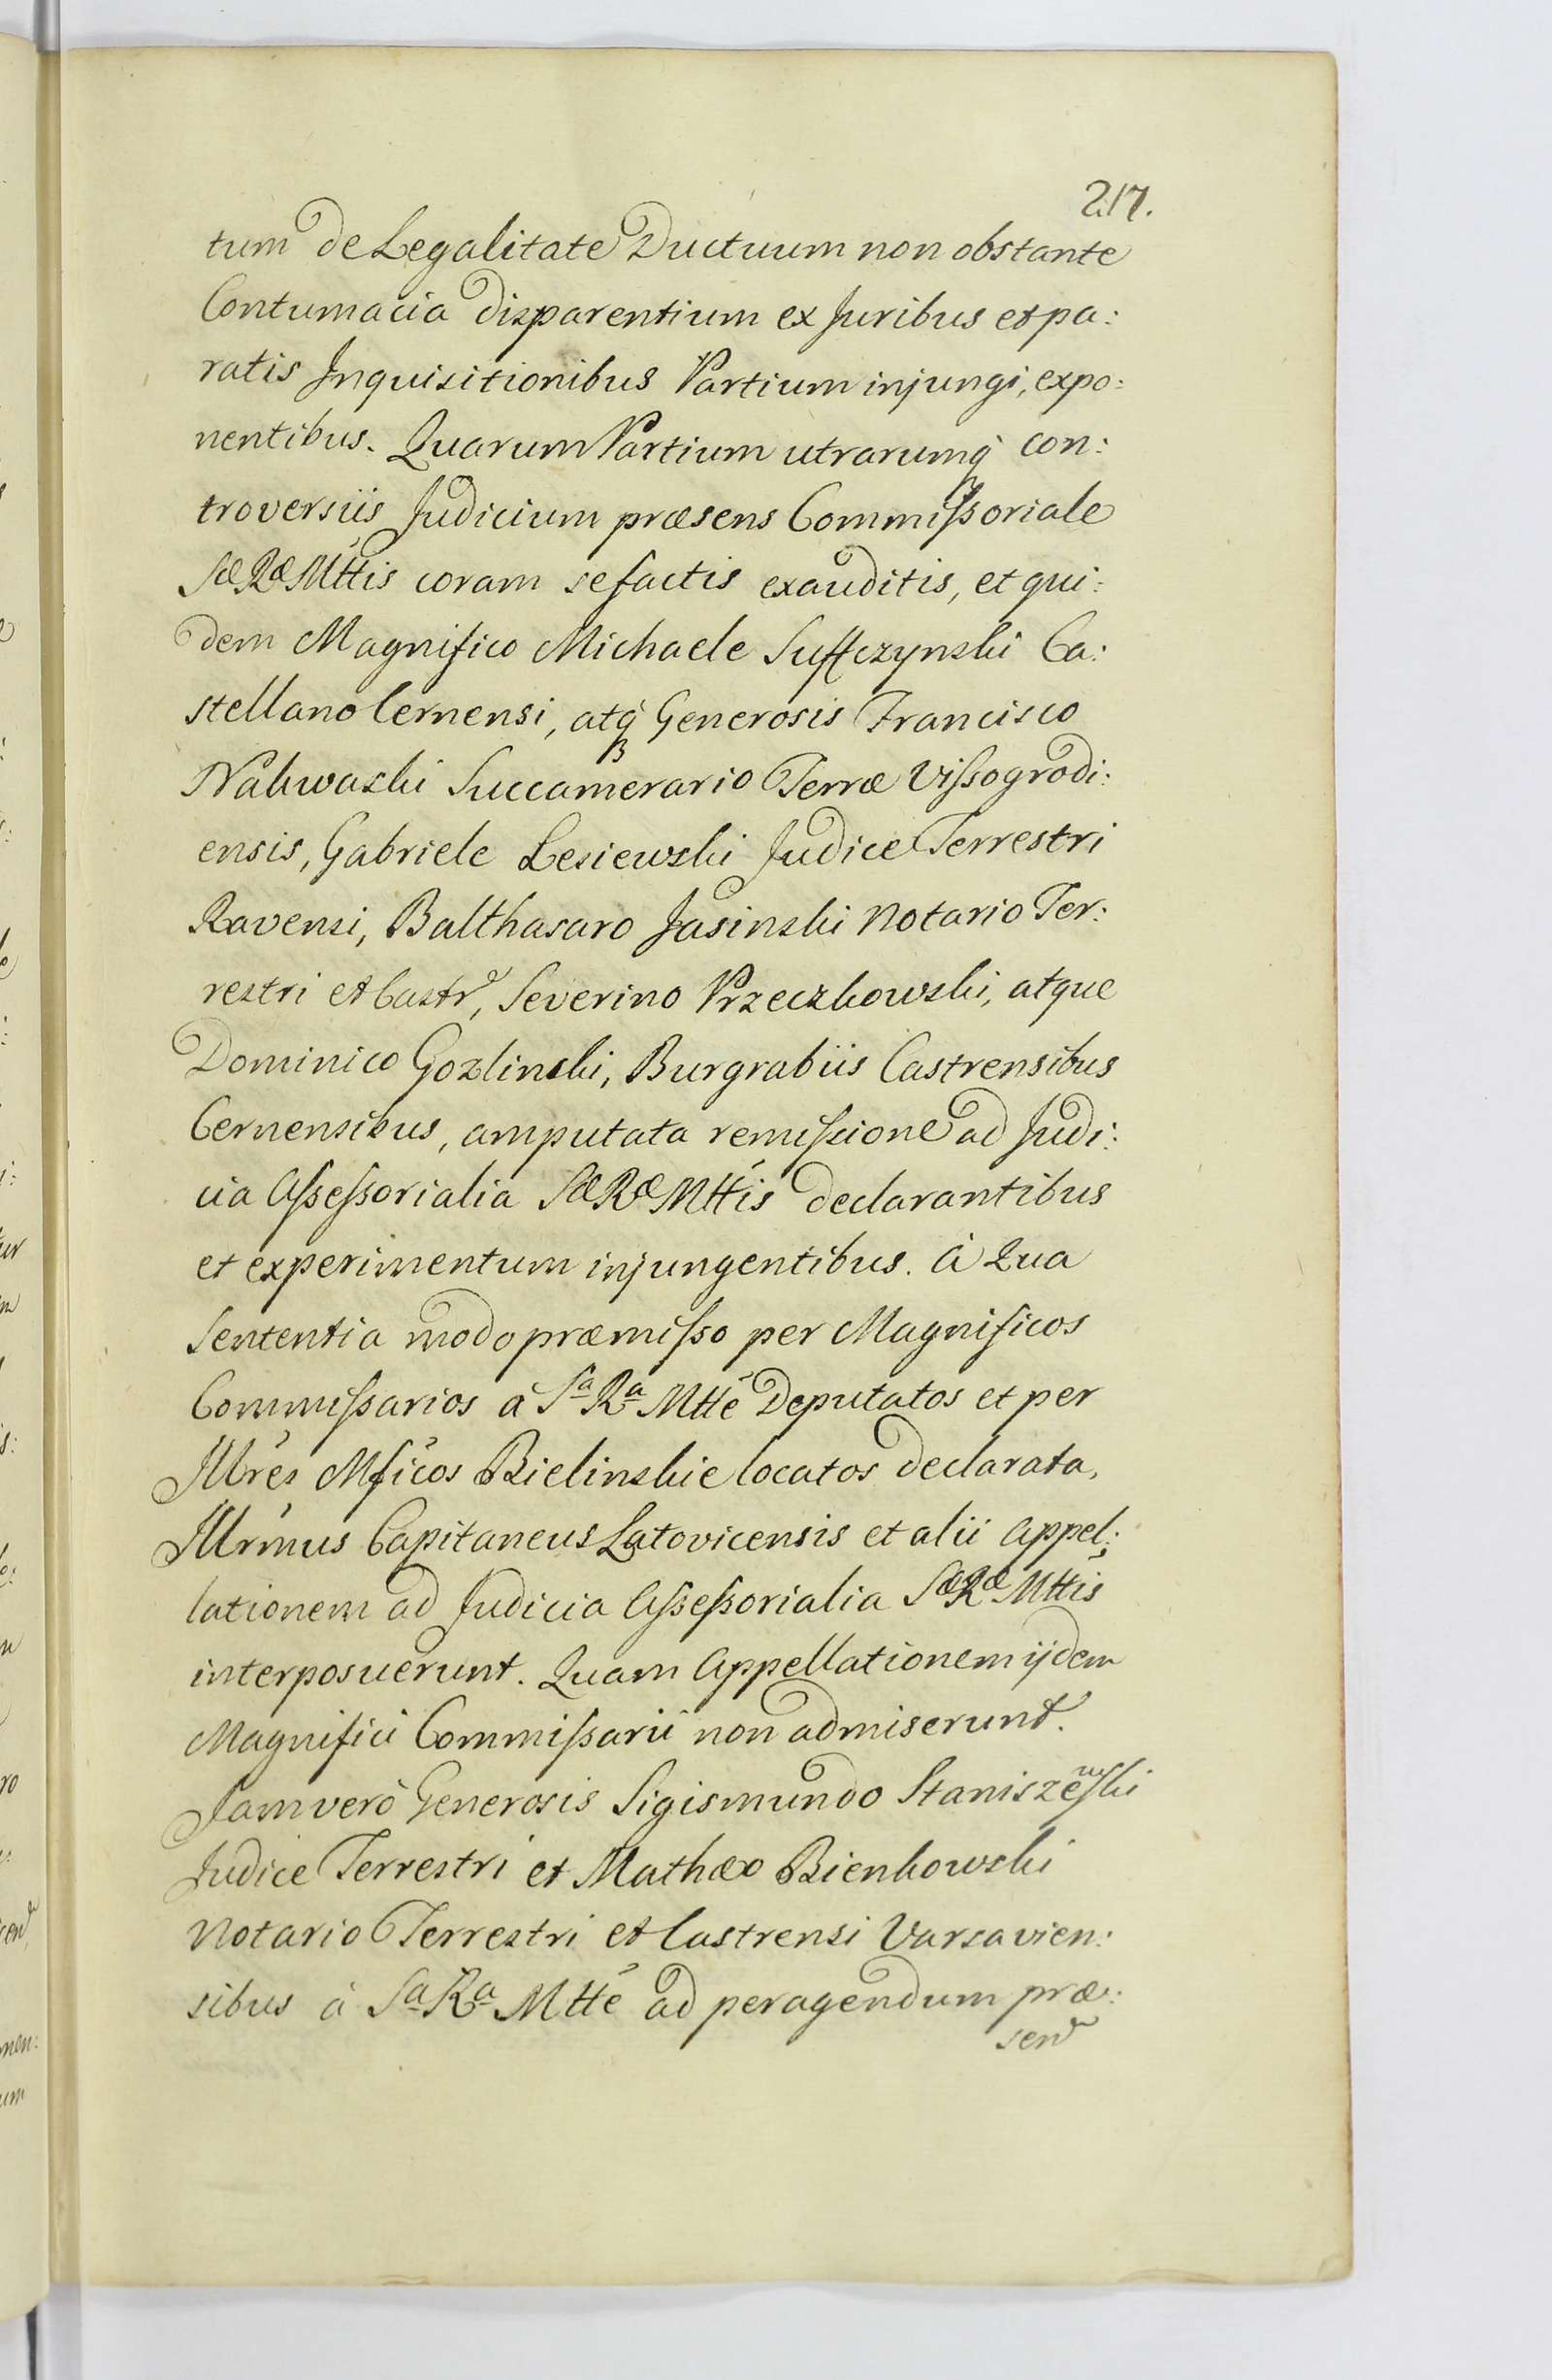 217.
tum de Legalitate Ductuum non obstante
Contumacia disparentium ex Juribus et pa:
ratis Inquisitionibus Partium injungi, expo:
nentibus. Quarum Partium utrarumq́ con:
troversiis Judicium præsens Commissoriale
Sæ Ræ Mttis coram se factis exauditis, et qui:
dem Magnifico Michaele Suffczynski Ca:
stellano Cernensi, atq́ Generosis Francisco
Nakwaski Succamerario Terræ Vissogrodi:
ensis, Gabriele Lesiewski Judice Terrestri
Ravensi, Balthasaro Jasinski Notario Ter:
restri et Castr, Severino Przeczkowski, atque
Dominico Gozlinski, Burgrabiis Castrensibus
Cernensibus, amputata remissione ad Judi:
cia Assessorialia Sæ Ræ Mttis declarantibus
et experimentum injungentibus. à Qua
Sententia modo præmisso per Magnificos
Commissarios à Sa Ra Mtte Deputatos et per
Illres Mficos Bielinskie locatos declarata,
Illrmus Capitaneus Latovicensis et alii Appel:
lationem ad Judicia Assessorialia Sæ Ræ Mttis
interposuerunt. Quam Appellationem ijdem
Magnifici Commissarii non admiserunt.
Jam verò Generosis Sigismundo Staniszewski
Judice Terrestri et Mathæo Bienkowski
Notario Terrestri et Castrensi Varsavien:
sibus à Sa Ra Mtte ad peragendum præ:
sen